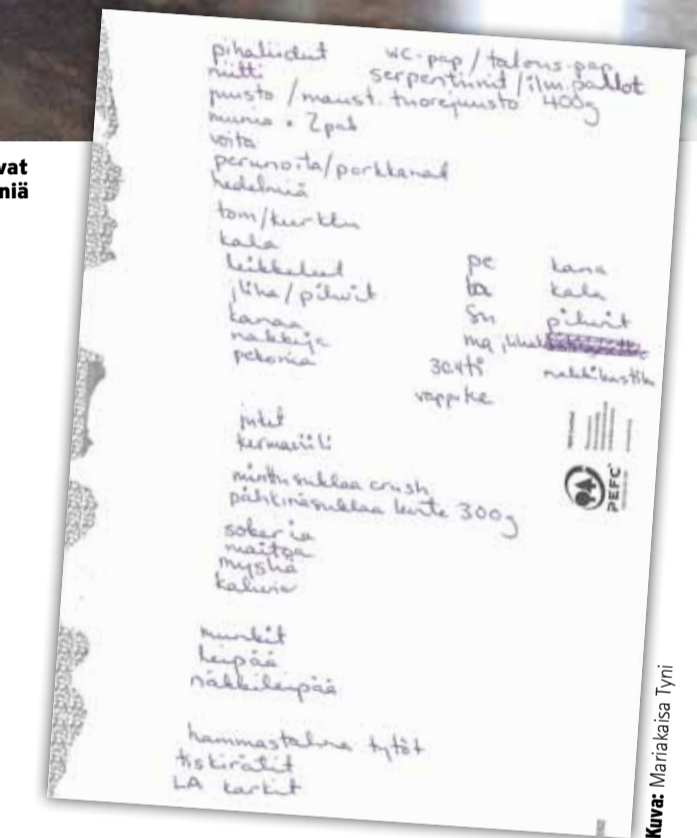 vat
niä
pihaliidut wc-pap / talous-pap
niitti serpentiinit / ilm.pallot
juusto / maust. tuorejuusto 400g
munia • 2pak
voita
perunoita/porkkanat
hedelmiä
tom/kurkku
kala
leikkeleet pe kana
j.liha / pihvit la kala
kanaa su pihvit
nakkeja ma
pekonia 30.4 ti nakkikastike
vappu ke
jukut
kermaviili
minttusuklaa crush
pähkinäsuklaa levite 300g
sokeria
maitoa
mysliä
kahvia
munkit
leipää
näkkileipää
hammastahna tytöt
tiskirätit
LA karkit
PEFC
Kuva: Mariakaisa Tyni